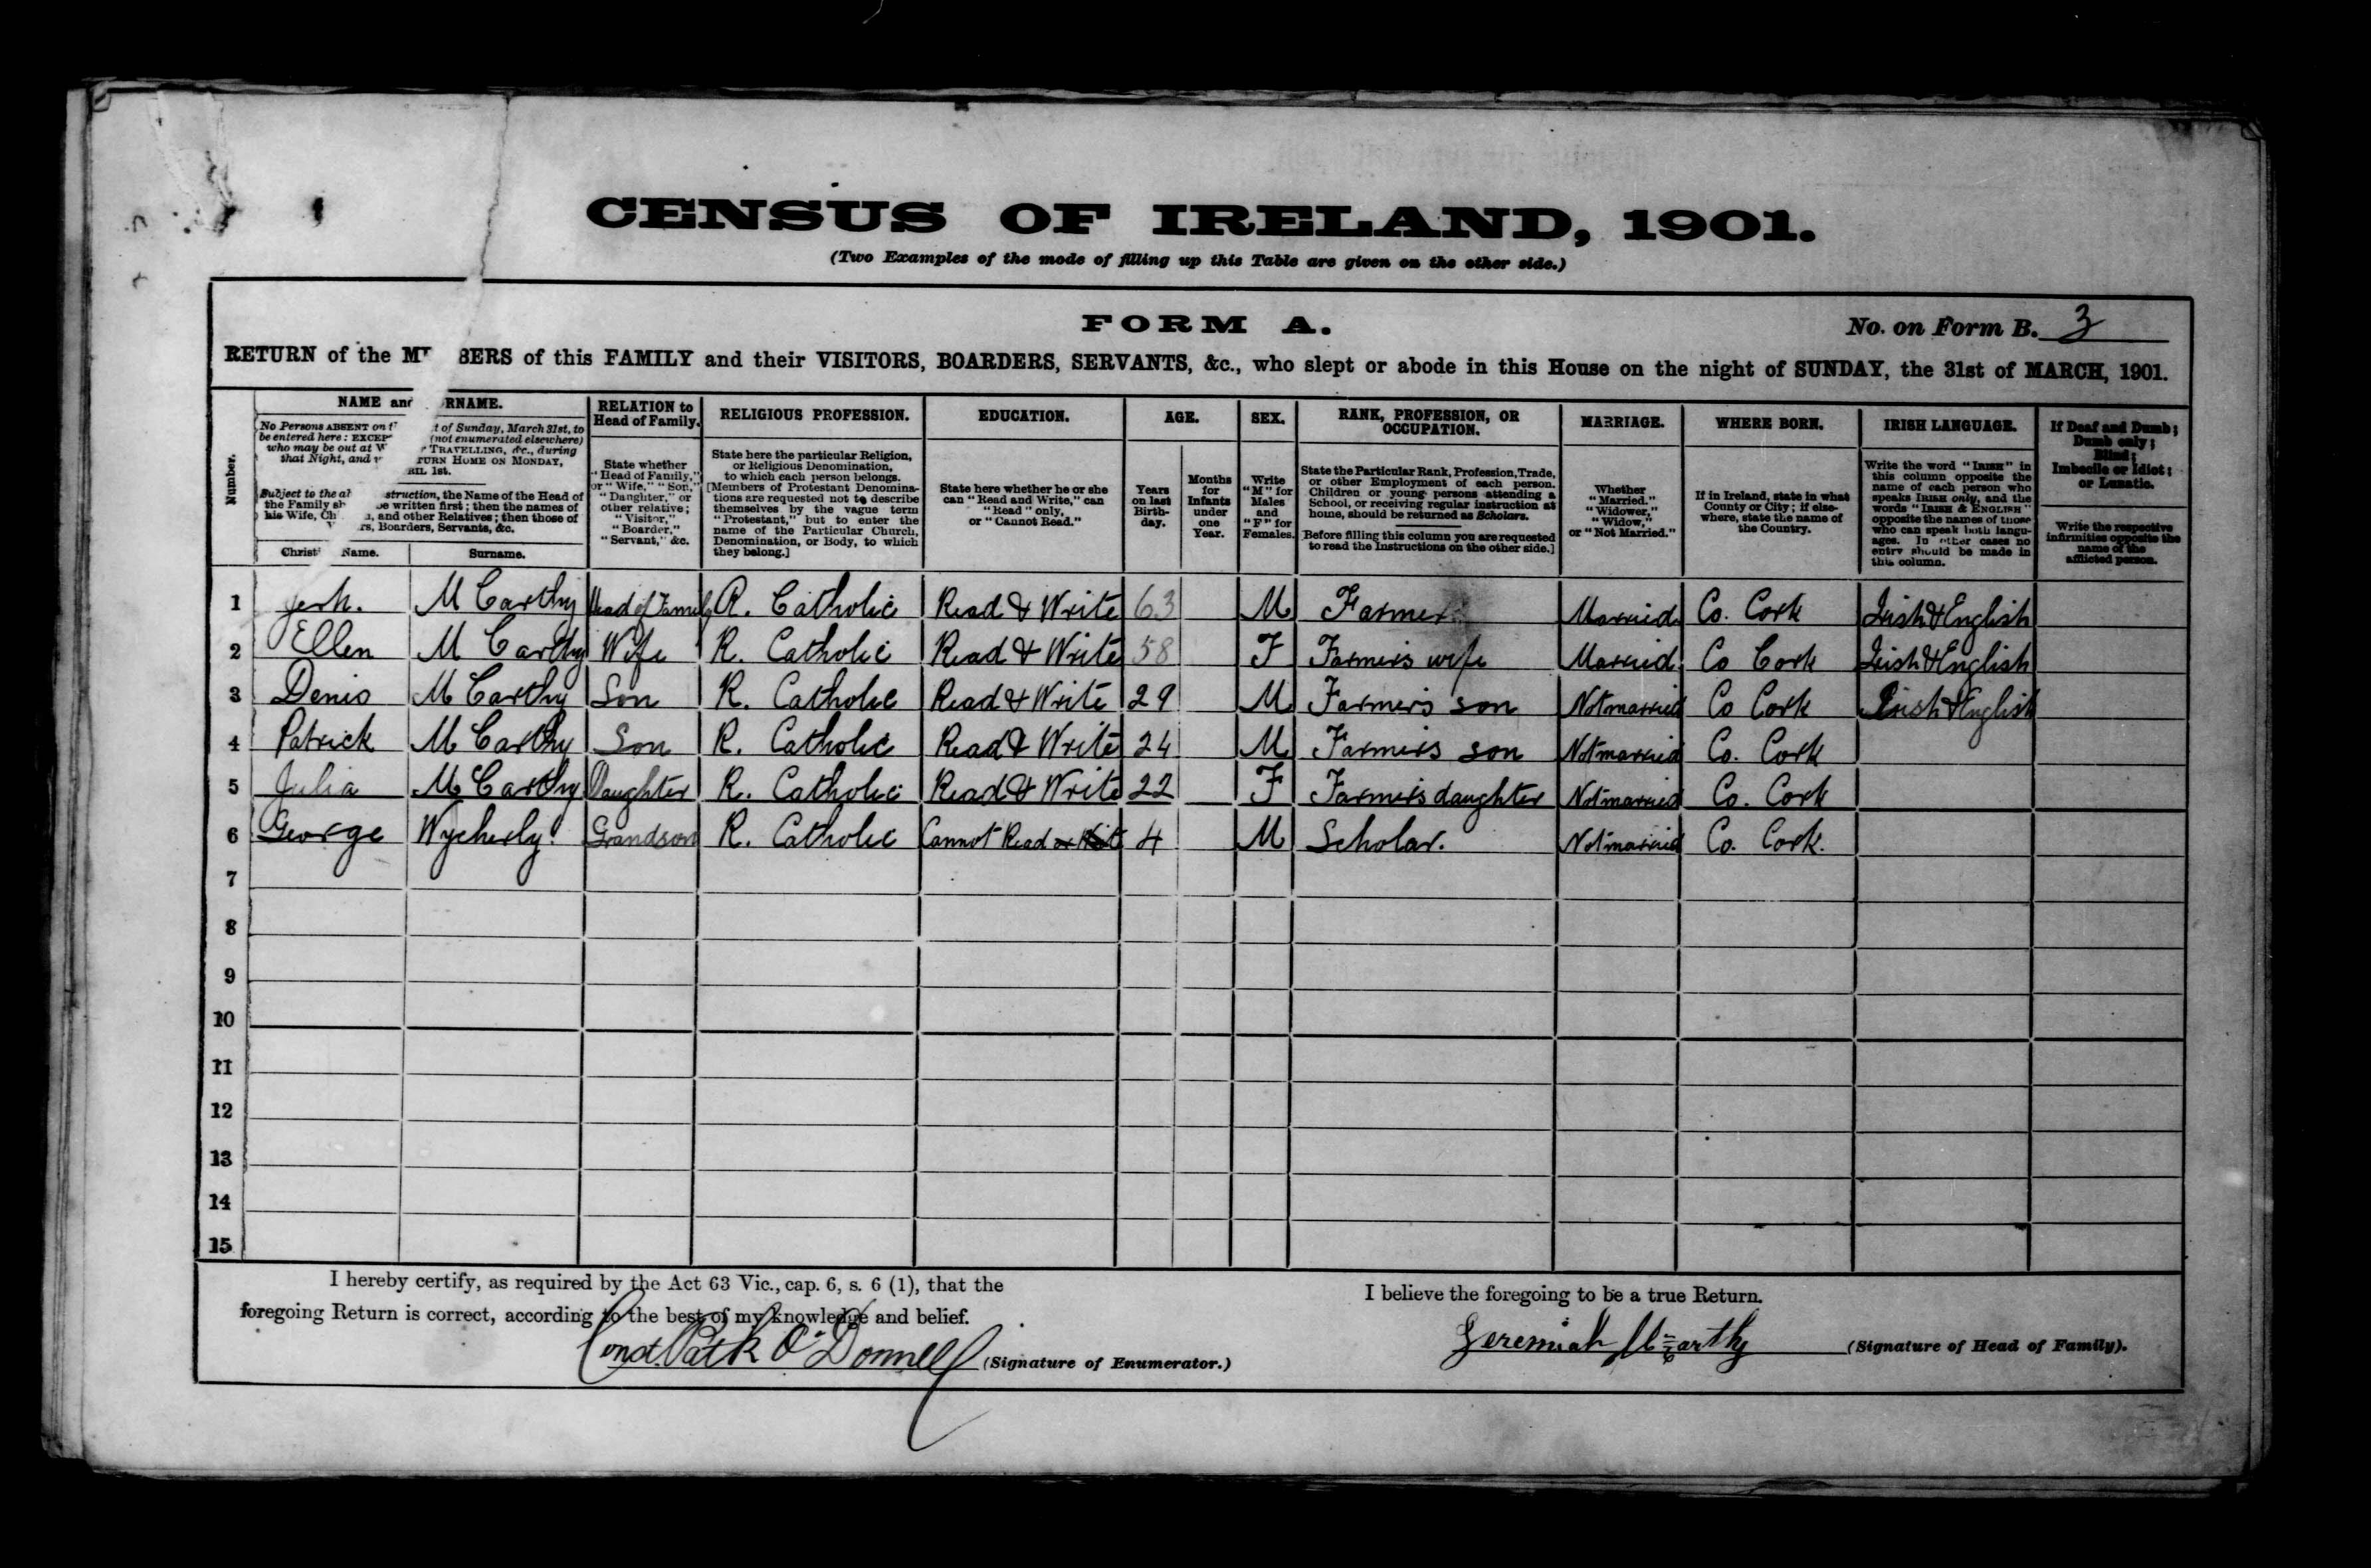 CENSUS OF IRELAND, 1901.
(Two Examples of the mode of filling up this Table are given on the other side.)
FORM A.
No. on Form B. 3
RETURN of the BERS of this FAMILY and their VISITORS, BOARDERS, SERVANTS, &c., who slept or abode in this House on the night of SUNDAY, the 31st of MARCH, 1901.
Number.
NAME and RNAME.
No Persons ABSENT on t of Sunday, March 31st, to
be entered here: EXCEP (not enumerated elsewhere)
who may be out at W TRAVELLING, &c., during
that Night, and TURN HOME ON MONDAY,
RIL 1st.
Subject to the a struction, the Name of the Head of
the Family sh be written first; then the names of
his Wife, Ch and other Relatives; then those of
rs, Boarders, Servants, &c.
Christ Name.
Surname.
RELATION to
Head of Family.
State whether
"Head of Family,"
or "Wife," "Son,"
"Daughter," or
other relative;
"Visitor,"
"Boarder,"
"Servant," &c.
RELIGIOUS PROFESSION.
State here the particular Religion,
or Religious Denomination,
to which each person belongs.
[Members of Protestant Denomina-
tions are requested not to describe
themselves by the vague term
"Protestant," but to enter the
name of the Particular Church,
Denomination, or Body, to which
they belong.]
EDUCATION.
State here whether he or she
can "Read and Write," can
"Read" only,
or "Cannot Read."
AGE.
Years
on last
Birth-
day.
Months
for
Infants
under
one
Year.
SEX.
Write
"M" for
Males
and
"F" for
Females.
RANK, PROFESSION, OR
OCCUPATION.
State the Particular Rank, Profession, Trade,
or other Employment of each person.
Children or young persons attending a
School, or receiving regular instruction at
home, should be returned as Scholars.
[Before filling this column you are requested
to read the Instructions on the other side.]
MARRIAGE.
Whether
"Married,"
"Widower,"
"Widow,"
or "Not Married."
WHERE BORN.
If in Ireland, state in what
County or City; if else-
where, state the name of
the Country.
IRISH LANGUAGE.
Write the word "IRISH" in
this column opposite the
name of each person who
speaks IRISH only, and the
words "IRISH & ENGLISH"
opposite the names of those
who can speak both langu-
ages. In other cases no
entry should be made in
this column.
If Deaf and Dumb;
Dumb only;
Blind;
Imbecile or Idiot;
or Lunatic.
Write the respective
infirmities opposite the
name of the
afflicted person.
1 Jerh. McCarthy Head of Family R. Catholic Read & Write 63 M Farmer Married Co. Cork Irish & English
2 Ellen McCarthy Wife R. Catholic Read & Write 58 F Farmers wife Married Co Cork Irish & English
3 Denis McCarthy Son R. Catholic Read & Write 29 M Farmers son Not married Co Cork Irish & English
4 Patrick McCarthy Son R. Catholic Read & Write 24 M Farmers son Not married Co. Cork
5 Julia McCarthy Daughter R. Catholic Read & Write 22 F Farmers daughter Not married Co. Cork
6 George Wycherly. Grandson R. Catholic Cannot Read or Write 4 M Scholar. Not married Co. Cork.
7
8
9
10
11
12
13
14
15
I hereby certify, as required by the Act 63 Vic., cap. 6, s. 6 (1), that the
foregoing Return is correct, according to the best of my knowledge and belief.
Const. Patk O'Donnell (Signature of Enumerator.)
I believe the foregoing to be a true Return.
Jeremiah McCarthy (Signature of Head of Family).